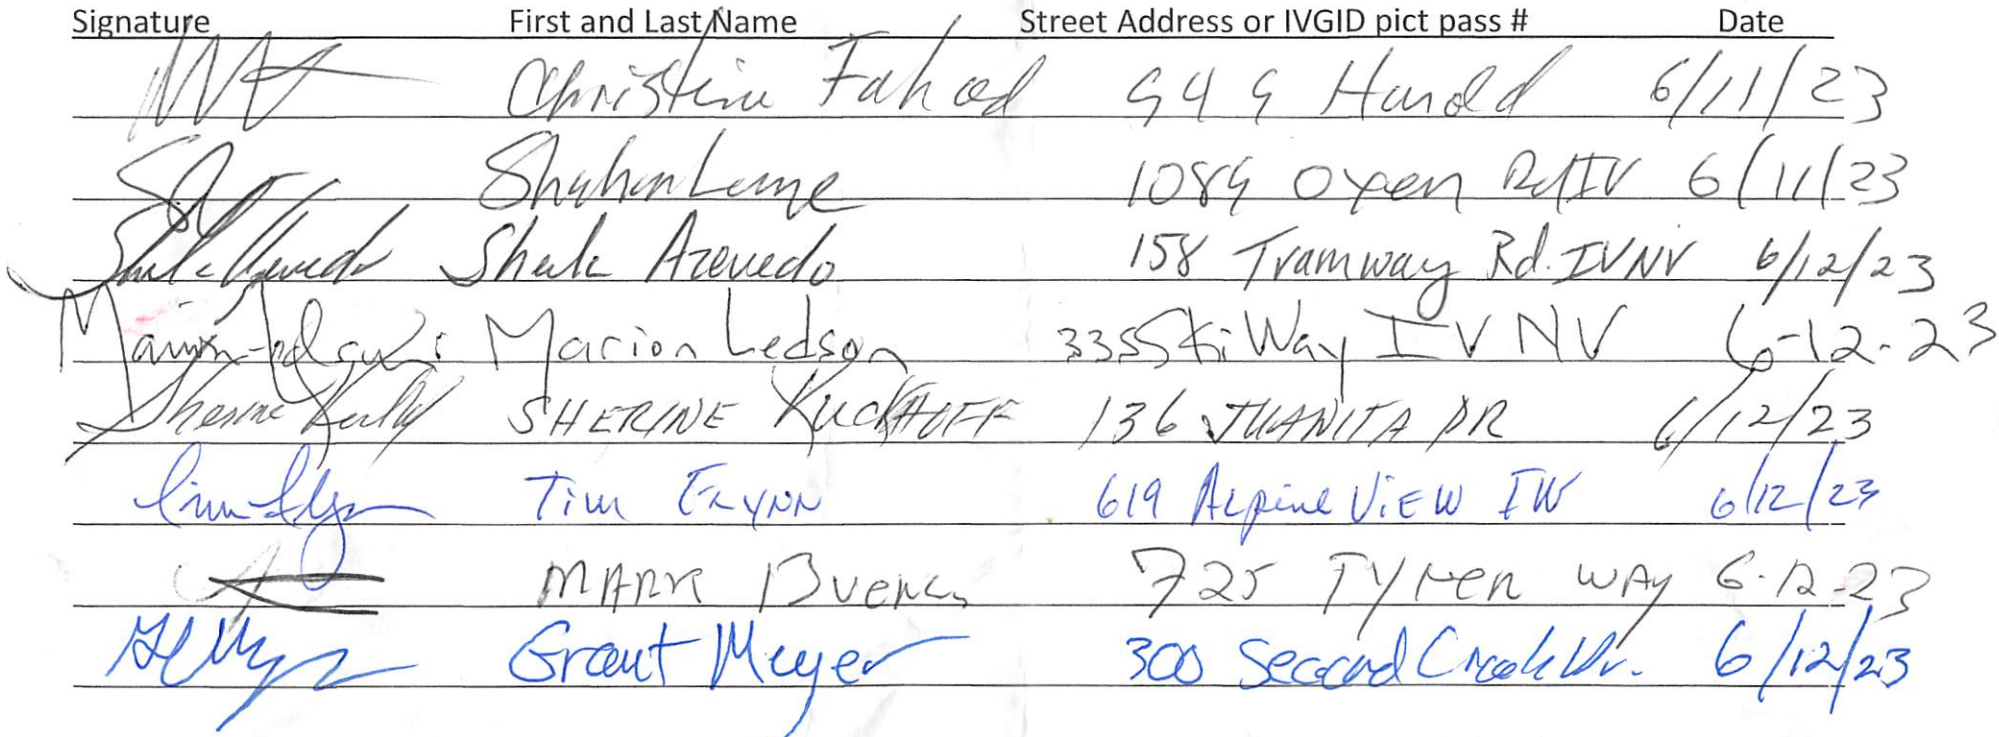 Signature First and Last Name Street Address or IVGID pict pass # Date
Christine Fahad 949 Harold 6/11/23
1089 Oxen Rd IV 6/11/23
Sheila Azevedo Sheila Azevedo 158 Tramway Rd. IV NV 6/12/23
Marion Ledson Marion Ledson 335 Ski Way IV NV 6-12-23
SHERINE KuckHOFF 136 JUANITA DR 6/12/23
Tim FLYNN 619 Alpine ViEW IV 6/12/23
MARK 725 TYNER WAY 6-12-23
Grant Meyer 300 Second Creek Dr. 6/12/23